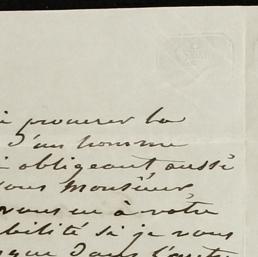 procurer la
d'un homme
obligeant aussi
vous Monsieur,
vous eu à votre
bilité si je vous
que dans l'autre